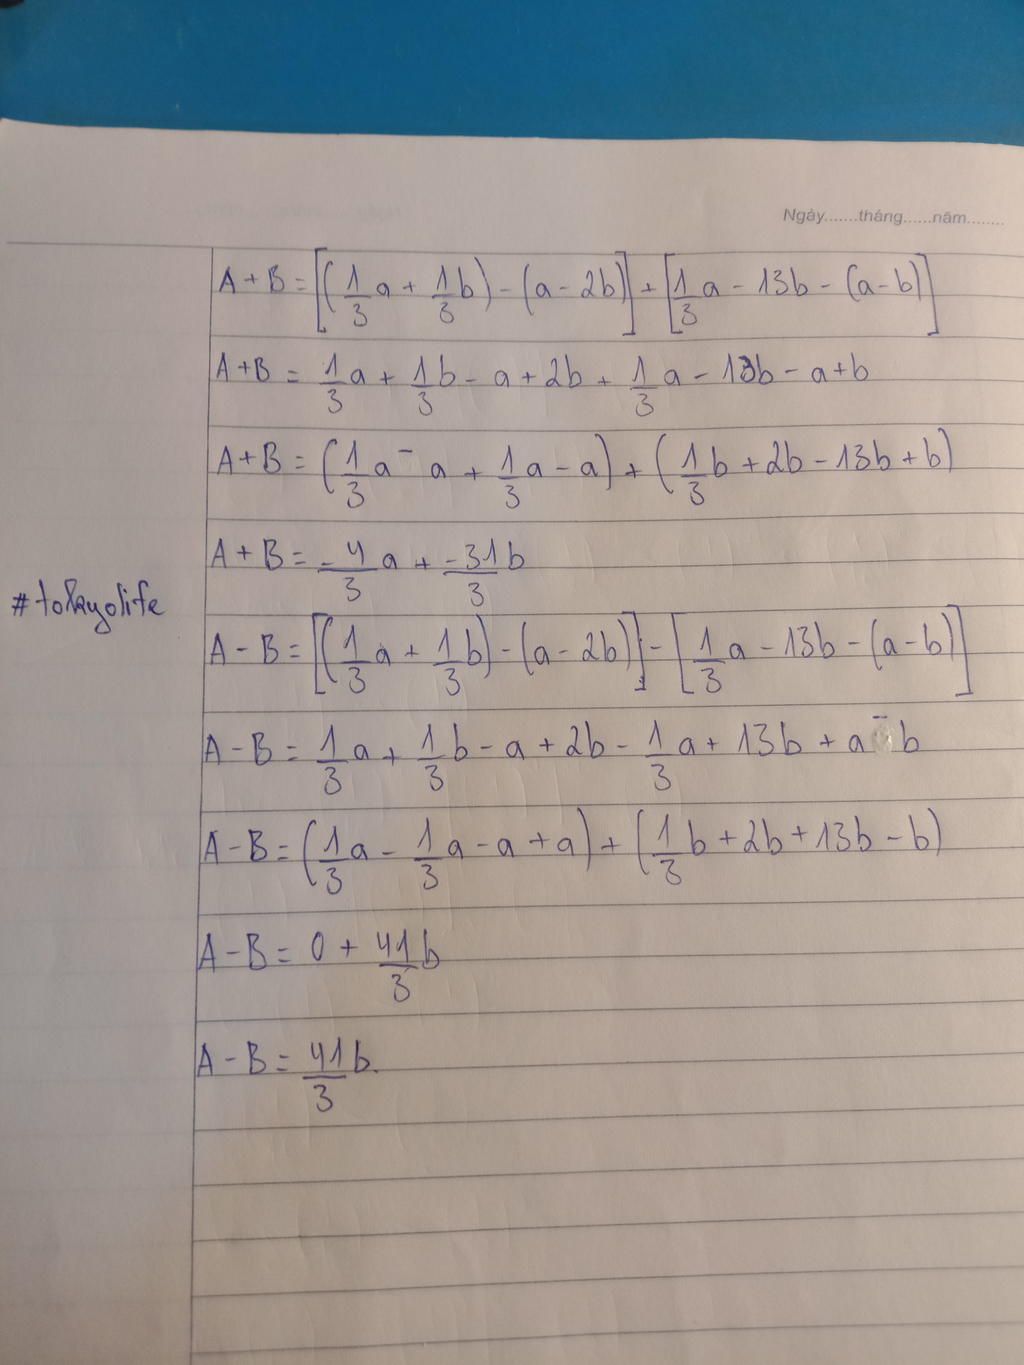 Ngày.......tháng......năm........
A + B = [(1/3 a + 1/3 b) - (a - 2b)] + [1/3 a - 13b - (a - b)]
A + B = 1/3 a + 1/3 b - a + 2b + 1/3 a - 13b - a + b
A + B = (1/3 a - a + 1/3 a - a) + (1/3 b + 2b - 13b + b)
A + B = -4/3 a + -31/3 b
#tokyolife
A - B = [(1/3 a + 1/3 b) - (a - 2b)] - [1/3 a - 13b - (a - b)]
A - B = 1/3 a + 1/3 b - a + 2b - 1/3 a + 13b + a - b
A - B = (1/3 a - 1/3 a - a + a) + (1/3 b + 2b + 13b - b)
A - B = 0 + 41/3 b
A - B = 41/3 b.